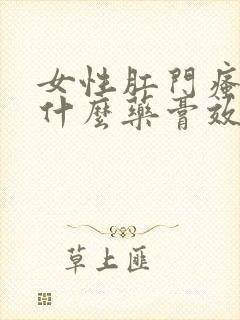 女性肛門瘙
什麼藥膏效
草上匪